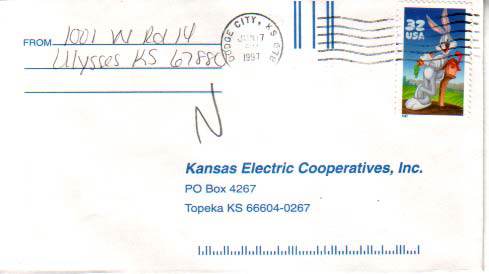 FROM 1001 W Rd 14
Ulysses KS 67880
DODGE CITY, KS 678
JUN 17
PM
1997
32
USA
N
Kansas Electric Cooperatives, Inc.
PO Box 4267
Topeka KS 66604-0267